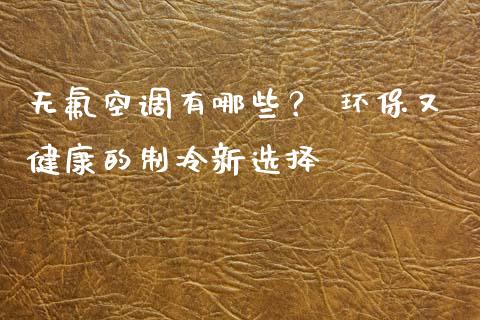 无氟空调有哪些？ 环保又
健康的制冷新选择